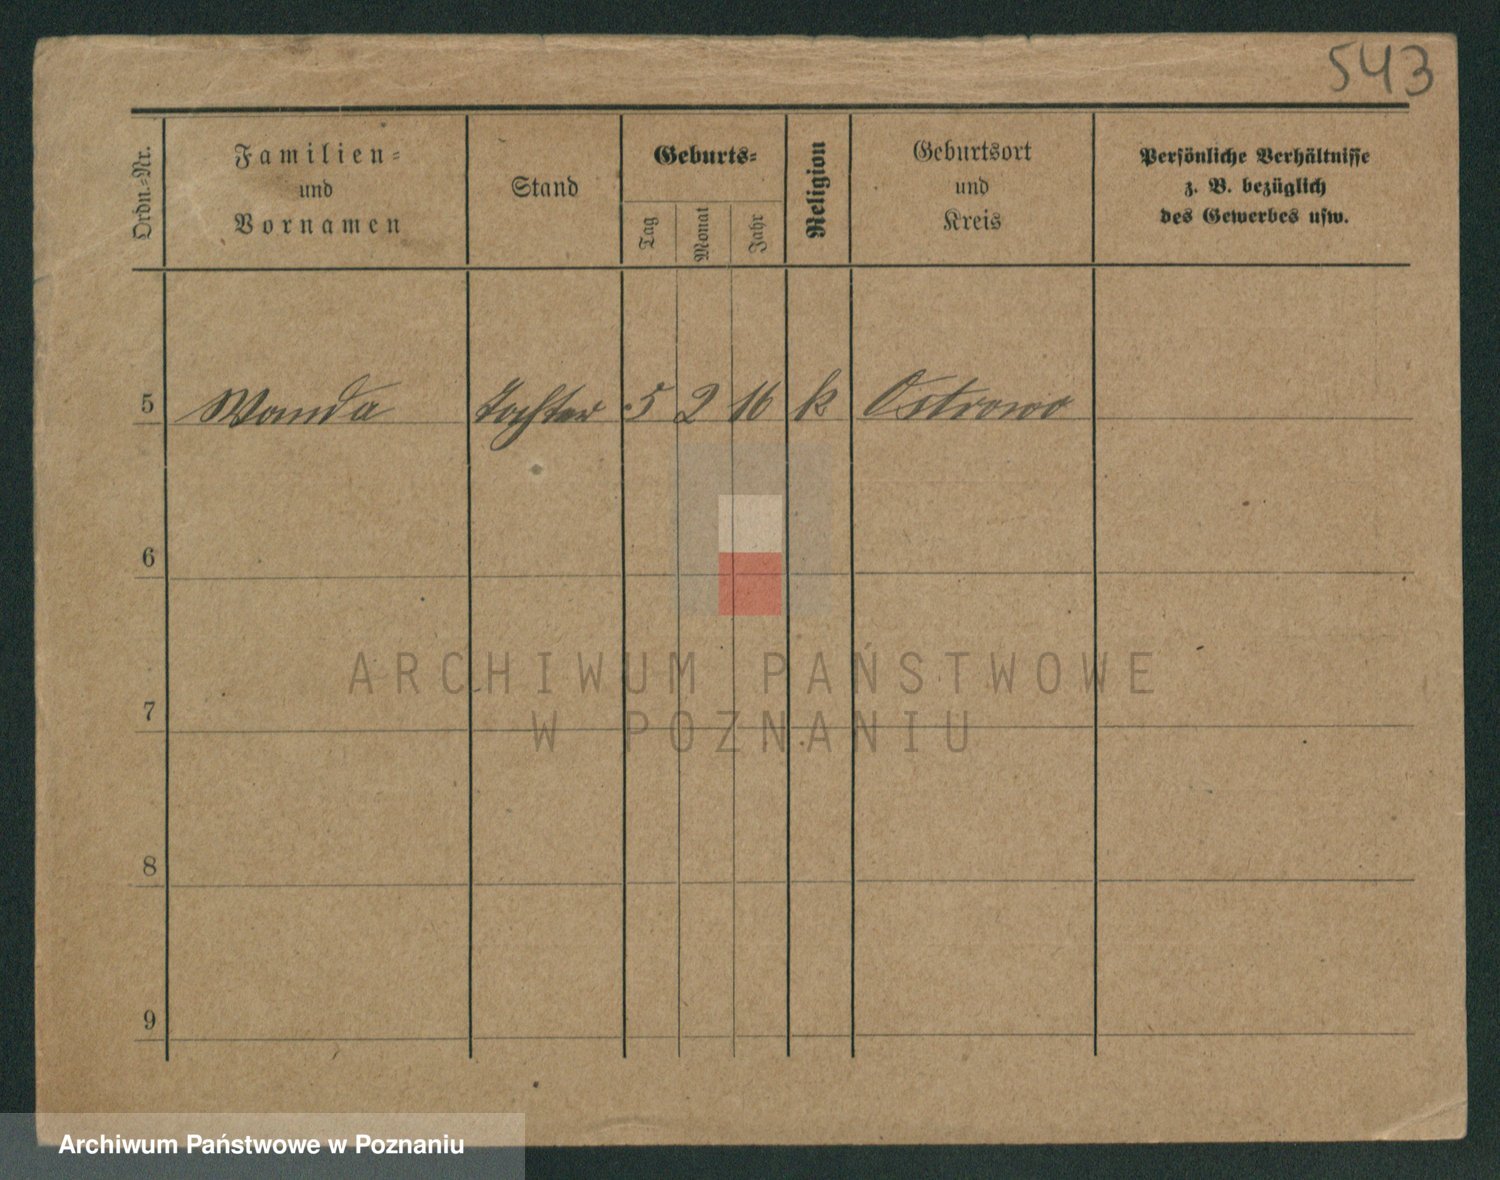 543
Ordn.-Nr.
Familien-
und
Vornamen
Stand
Geburts-
Tag
Monat
Jahr
Religion
Geburtsort
und
Kreis
Persönliche Verhältnisse
z. B. bezüglich
des Gewerbes usw.
5 Wanda Tochter 5 2 16 k Ostrowo
6
7
8
9
ARCHIWUM PAŃSTWOWE
W POZNANIU
Archiwum Państwowe w Poznaniu